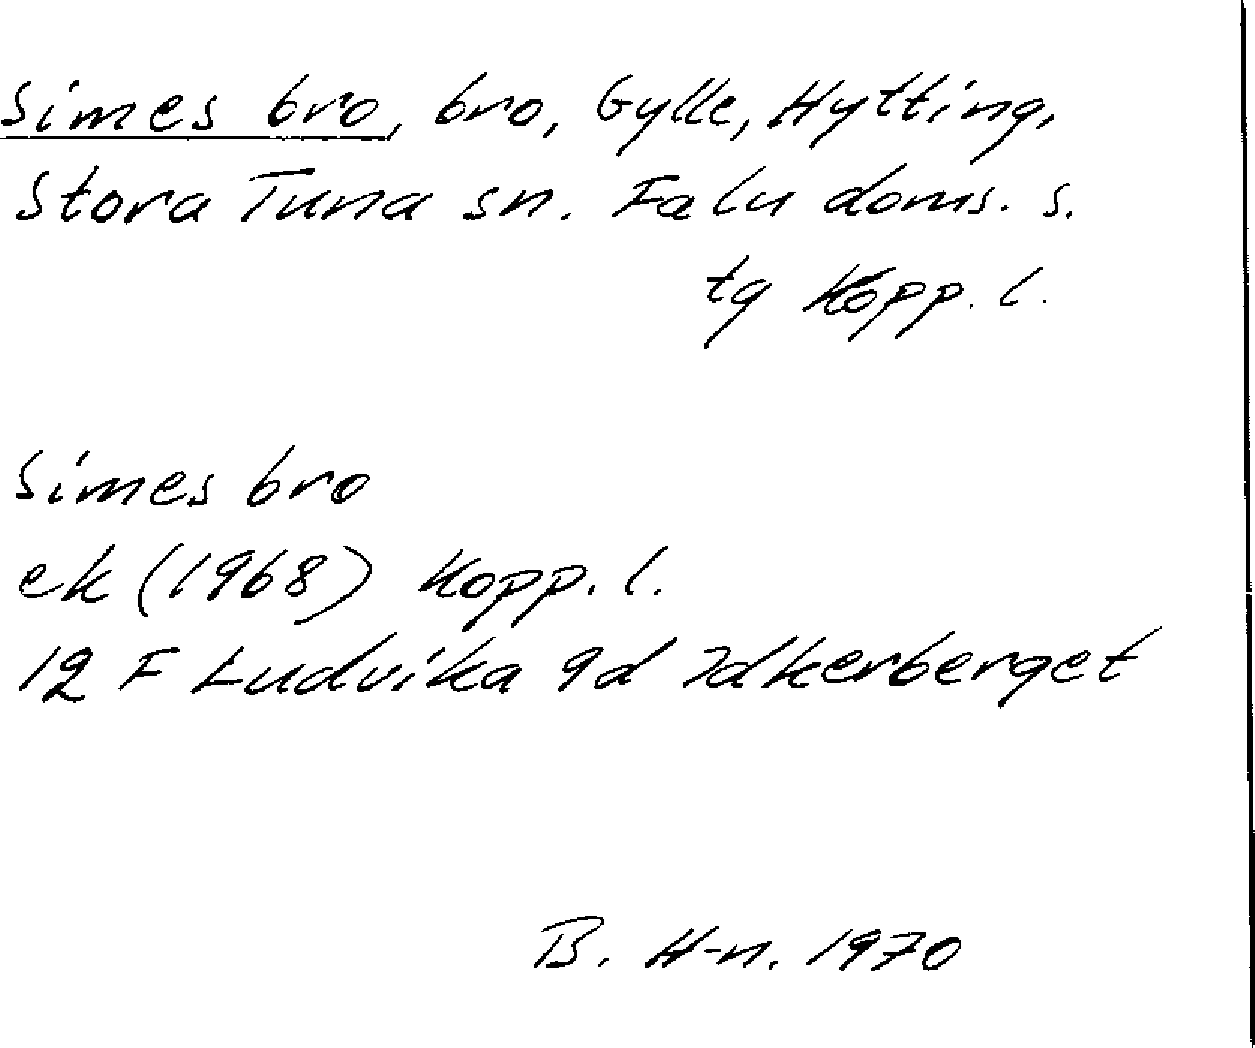 Simes bro, bro, Gylle, Hytting,
Stora Tuna sn. Falu doms. s.
tg Kopp. l.
Simes bro
ek (1968) Kopp. l.
12 F Ludvika 9d Idkerberget
B. H-n. 1970